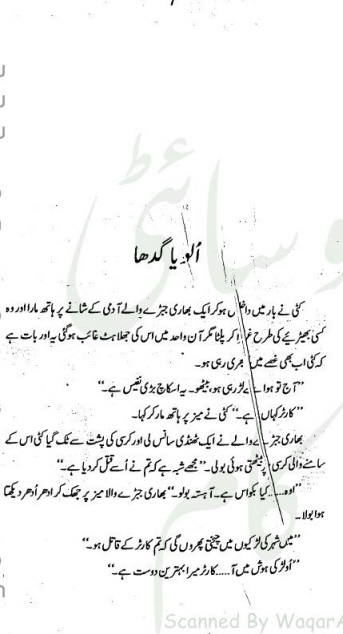 اُلو یا گدھا
کٹی نے بار میں داخل ہو کر ایک بھاری جبڑے والے آدمی کے شانے پر ہاتھ مارا اور وہ
کسی بھیڑیے کی طرح غرا کر پلٹا مگر آن واحد میں اس کی جھلاہٹ غائب ہو گئی یہ اور بات ہے
کہ کٹی اب بھی غصے میں بھری رہی ہو۔
”آج تو ہوا سے لڑ رہی ہو، بیٹھو۔ یہ اسکاچ بڑی نفیس ہے۔“
”کارٹر کہاں ہے۔“ کٹی نے میز پر ہاتھ مار کر کہا۔
بھاری جبڑے والے نے ایک ٹھنڈی سانس لی اور کرسی کی پشت سے ٹک گیا کٹی اس کے
سامنے والی کرسی پر بیٹھتی ہوئی بولی۔ ”مجھے شبہ ہے کہ تم نے اُسے قتل کر دیا ہے۔“
”اوہ.....کیا بکواس ہے۔ آہستہ بولو۔“ بھاری جبڑے والا میز پر جھک کر ادھر اُدھر دیکھتا
ہوا بولا۔
”میں شہر کی لڑکیوں میں چیختی پھروں گی کہ تم کارٹر کے قاتل ہو۔“
”اُو لڑکی ہوش میں آ.....کارٹر میرا بہترین دوست ہے۔“
Scanned By WaqarA